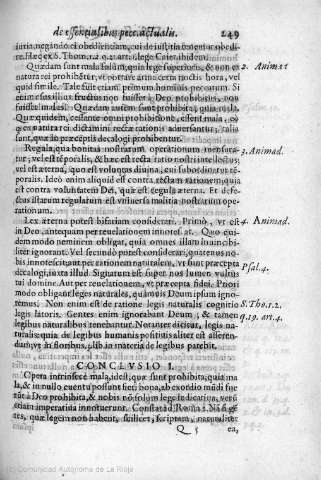 de essentialibus pecc. actualis. 249
iuria, negando ei obedientiam, cui de iustitia tenemur obedire.
Quædam sunt mala solùm, quia lege superiori, & non ex 2. Animad.
natura rei prohibetur, vt portare arma certa noctis hora, vel
quid simile. Tale fuit etiam primum hominis peccatum. Si
enim esus illius fructus non fuisset à Deo prohibitus, non
fuisset malus. Quædam autem sunt prohibita, quia mala.
Quæ quidem, cessante omni prohibitione, essent mala, eò
quod ex natura rei dictamini rectæ rationis aduersantur, talia
sunt, quæ in præceptis decalogi prohibentur.
Regula, qua bonitas nostrarum operationum mensuratur, 3. Animad.
vel est temporalis, & hæc est recta ratio nostri intellectus;
vel est æterna, quæ est voluntas diuina, cui subordinatur temporalis.
Ideò enim aliquid est contra rectam rationem, quia
est contra voluntatem Dei, quæ est regula æterna. Et defectus
istarum regularum est vniuersa malitia nostrarum operationum.
Lex æterna potest bifariam considerari. Primò, vt est 4. Animad.
in Deo, antequam per reuelationem innotescat. Quo quidem
modo neminem obligat, quia omnes illam inuincibiliter
ignorant. Vel secundò potest considerari, quatenus nobis
innotescit aut per rationem naturalem, vt sunt præcepta
decalogi, iuxta illud. Signatum est super nos lumen vultus Psal. 4.
tui domine. Aut per reuelationem, vt præcepta fidei. Priori
modo obligant leges naturales, quamuis Deum ipsum ignoremus.
Non enim est de ratione legis naturalis cognitio S. Tho. 1. 2.
legis latoris. Gentes enim ignorabant Deum, & tamen q. 19. art. 4.
legibus naturalibus tenebantur. Notanter dicitur, legis naturalis:
quia de legibus humanis positiuis aliter est asserendum,
vt fusoribus, in materia de legibus patebit.
CONCLVSIO I.
Opera intrinsecè mala, idest, quæ sunt prohibita, quia mala,
& in nullo euentu possunt fieri bona, ab exordio mũdi fuerũt
à Deo prohibita, & nobis nõ solùm lege indicatiua, verùm
etiam imperatiua innotuerunt. Constat ad Roma. 2. Nã gentes,
quæ legem non habent, scilicet, scriptam, naturaliter
Q ea,
(c) Comunidad Autónoma de La Rioja